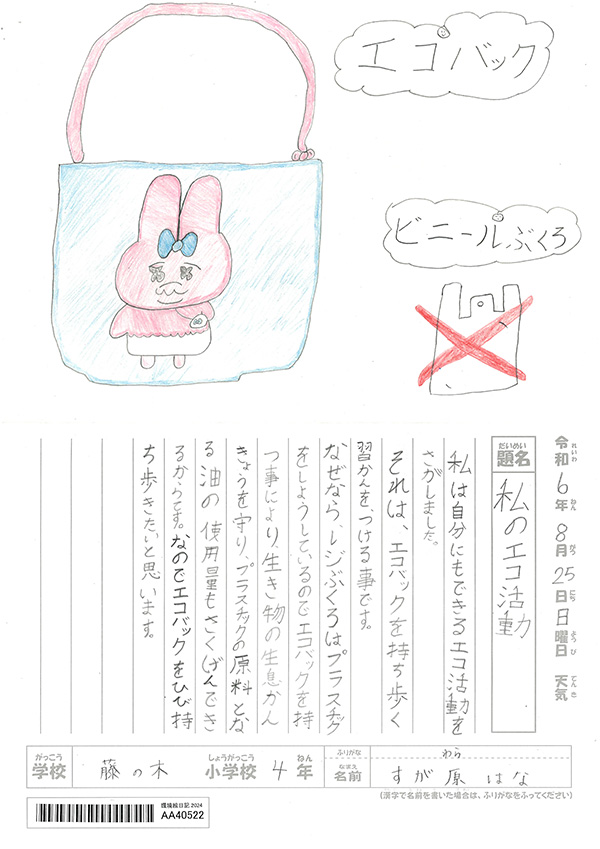 エコバック
ビニールぶくろ
令和6年8月25日日曜日 天気
れいわ ねん がつ にち ようび てんき
だいめい
題名 私のエコ活動
私は自分にもできるエコ活動を
さがしました。
それは、エコバックを持ち歩く
習かんを、つける事です。
なぜなら、レジぶくろはプラスチック
をしようしているのでエコバックを持
つ事により、生き物の生息かん
きょうを守り、プラスチックの原料とな
る油の使用量もさくげんでき
るからです。なのでエコバックをひび持
ち歩きたいと思います。
がっこう しょうがっこう ねん ふりがな わら
学校 藤の木 小学校 4年 なまえ 名前 すが原 はな
(漢字で名前を書いた場合は、ふりがなをふってください)
環境絵日記 2024
AA40522